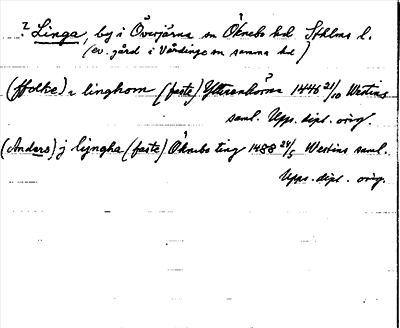 ? Linga, by i Överjärna sn Öknebo hd. Sthlms l.
(ev. gård i Vårdinge sn samma hd)
(ffolke) i linghom (faste) Ytteranhörna 1446 21/10 Westins
saml. Upps. dipl. orig.
(Anders) j lyngha (faste) Öknebo ting 1488 24/5 Westins saml.
Upps. dipl. orig.